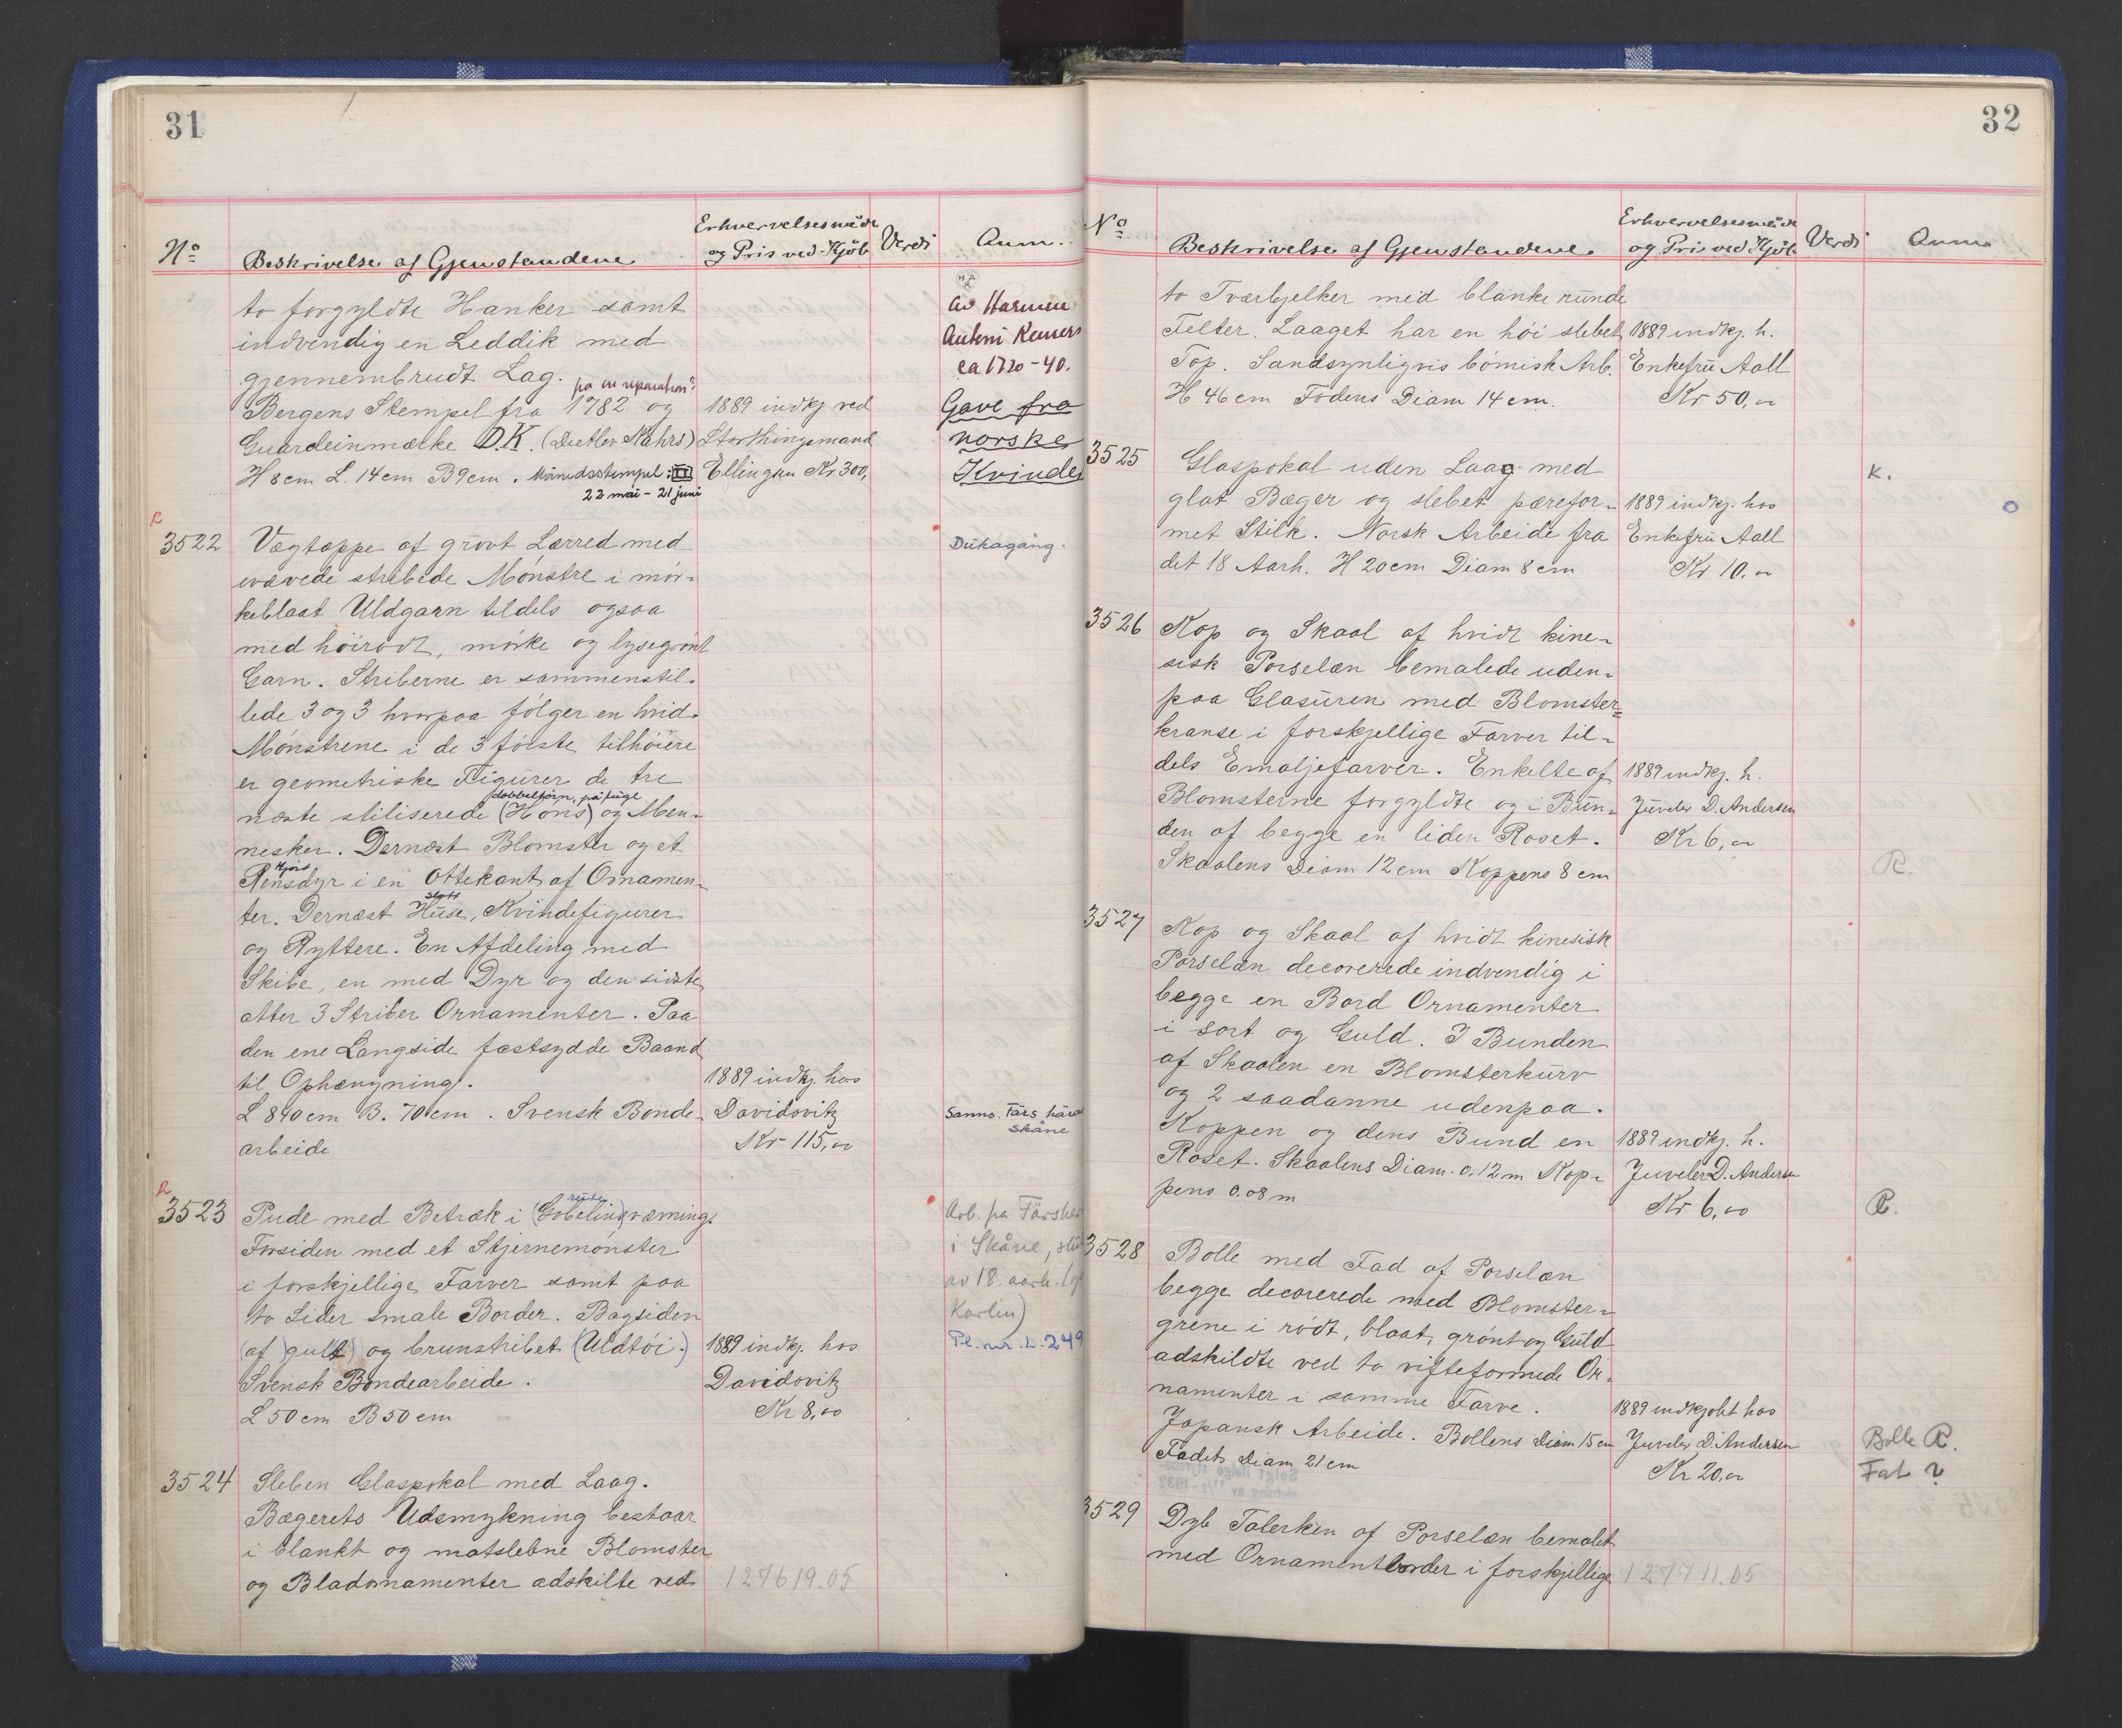 31
No
Beskrivelse af Gjenstandene
Erhvervelsesmåde
og Pris ved Kjöb
Verdi
Anm.
to forgyldte Hanker samt
indvendig en Leddik med
gjennembrudt Lag.
på en reparation?
Bergens Stempel fra 1782 og
Guardeinmærke D.K. (Ditlev Klahrs)
H 8 cm L. 14 cm B 9 cm. Månedsstempel:
22 mai - 21 juni
1889 indkj ved
Storthingsmand
Ellingsen Kr 300,
Av Harmen
Antoni Remers
ca 1720-40.
Gave fra
norske
Kvinder
R
3522
Vægtæppe af grovt Lærred med
ivævede stribede Mönstre i mör-
keblaat Uldgarn tildels ogsaa
med höirödt, mörke og lysegrönt
Garn. Striberne er sammenstil-
lede 3 og 3 hvorpaa fölger en hvid.
Mönstrene i de 3 förste tilhöiere
er geometriske Figurer de tre
dobbeltörn, påfugl
næste stiliserede (Höns) og Men-
nesker. Dernæst Blomster og et
Hjort
Rensdyr i en Ottekant af Ornamen-
slott
ter. Dernæst Huse, Kvindefigurer
og Ryttere. En Afdeling med
Skibe, en med Dyr og den sidste
atter 3 Striber Ornamenter. Paa
den ene Langside fastsydde Baand
til Ophængning.
L 840 cm B. 70 cm. Svensk Bonde-
arbeide
1889 indkj. hos
Davidovitz
Kr 115,00
Dukagång.
Sanns. Färs härad
Skåne
R
3523
Pude med Betræk i (Gobelin)vævning.
Forsiden med et Stjernemönster
i forskjellige Farver samt paa
to Sider smale Border. Bagsiden
(af) gult) og brunstribet (Uldtöi.)
Svensk Bondearbeide.
L 50 cm B 50 cm
1889 indkj. hos
Davidovitz
Kr 8,00
Arb. på Färs
i Skåne,
av 18. aarh.
Karlin)
Pl. nr. L. 249
3524
Sleben Glaspokal med Laag.
Bægerets Udsmykning bestaar
i blankt og matslebne Blomster
og Bladornamenter adskilte ved
127619.05
32
No
Beskrivelse af Gjenstandene
Erhvervelsesmåde
og Pris ved Kjöb
Verdi
Anm
to Tværbjelker med blanke runde
Felter. Laaget har en höi slebet
Top. Sandsynligvis bömisk Arb.
H 46 cm Fodens Diam 14 cm.
1889 indkj. h.
Enkefru Aall
Kr 50,00
3525
Glaspokal uden Laag med
glat Bæger og slebet pærefor-
met Stilk. Norsk Arbeide fra
det 18 Aarh. H 20 cm Diam 8 cm
1889 indkj. hos
Enkefru Aall
Kr 10,00
K.
3526
Kop og Skaal af hvidt kine-
sisk Porselæn bemalede uden-
paa Glasuren med Blomster=
kranse i forskjellige Farver til-
dels Emaljefarver. Enkelte af
Blomsterne forgyldte og i Bun-
den af begge en liden Roset.
Skaalens Diam 12 cm Koppens 8 cm
1889 indkj. h.
Juveler D. Andersen
Kr 6,00
R.
3527
Kop og Skaal af hvidt kinesisk
Porselæn decorerede indvendig i
begge en Bord Ornamenter
i sort og Guld. I Bunden
af Skaalen en Blomsterkurv
og 2 saadanne udenpaa.
Koppen og dens Bund en
Roset. Skaalens Diam. 0,12 m Kop-
pens 0.08 m
1889 indkj. h.
Juveler D. Andersen
Kr 6,00
R.
3528
Bolle med Fad af Porselæn
begge decorerede med Blomster-
grene i rödt, blaat, grönt og Guld
adskildte ved to vifteformede Or-
namenter i samme Farve.
Japansk Arbeide. Bollens Diam 15 cm
Fadets Diam 21 cm
1889 indkjöbt hos
Juveler D. Andersen
Kr 20,00
Bolle R.
Fat ?
3529
Dyb Talerken af Porselæn bemalet
med Ornamentborder i forskjellige
127711.05